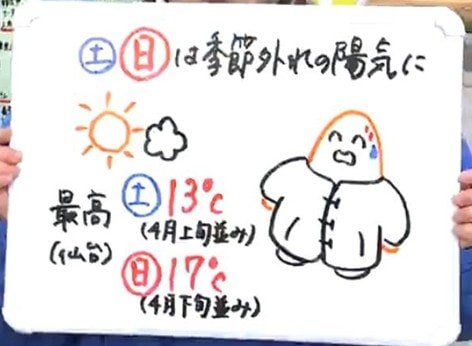 土日は季節外れの陽気に
最高
(仙台)
土13℃
(4月上旬並み)
日17℃
(4月下旬並み)